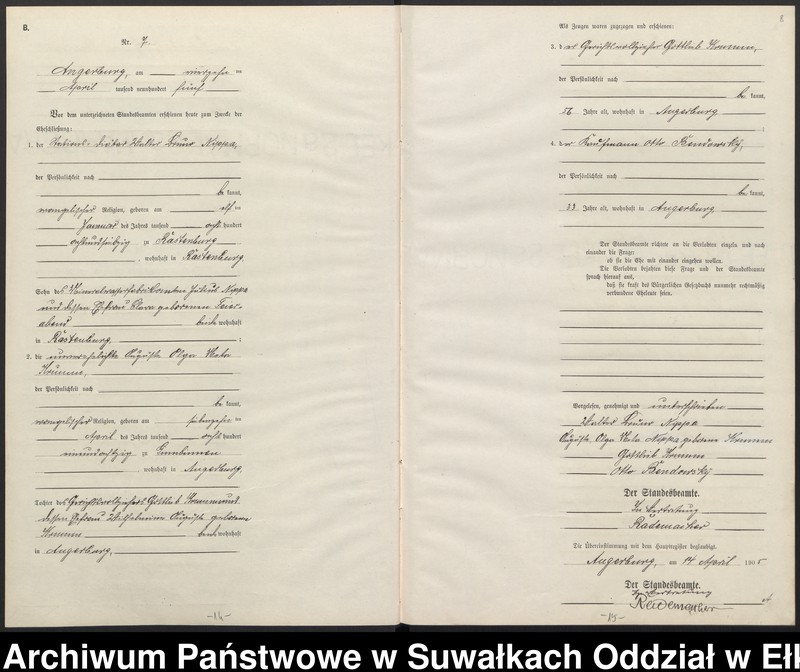 B.
Nr. 7
Angerburg, am vierzehnten
April tausend neunhundert fünf
Vor dem unterzeichneten Standesbeamten erschienen heute zum Zwecke der
Eheschließung:
1. der Stations-Diätar Walter Bruno Nippa,
der Persönlichkeit nach
be kannt,
evangelischer Religion, geboren am elften
Januar des Jahres tausend acht hundert
achtundsiebzig zu Rastenburg
, wohnhaft in Rastenburg
Sohn des Mineralwasserfabrikanten Julius Nippa
und dessen Ehefrau Clara geborenen Feier-
abend beide wohnhaft
in Rastenburg ;
2. die unverehelichte Auguste Olga Meta
Krumm,
der Persönlichkeit nach
be kannt,
evangelischer Religion, geboren am siebenzehnten
April des Jahres tausend acht hundert
einundachtzig zu Gumbinnen
, wohnhaft in Angerburg,
Tochter des Gerichtsvollziehers Gottlieb Krumm und
dessen Ehefrau Wilhelmine Auguste geborene
Krumm beide wohnhaft
in Angerburg,
-14-
8
Als Zeugen waren zugezogen und erschienen:
3. der Gerichtsvollzieher Gottlieb Krumm,
der Persönlichkeit nach
be kannt,
56 Jahre alt, wohnhaft in Angerburg
;
4. der Kaufmann Otto Bendowsky,
der Persönlichkeit nach
be kannt,
33 Jahre alt, wohnhaft in Angerburg
Der Standesbeamte richtete an die Verlobten einzeln und nach
einander die Frage:
ob sie die Ehe mit einander eingehen wollen.
Die Verlobten bejahten diese Frage und der Standesbeamte
sprach hierauf aus,
daß sie kraft des Bürgerlichen Gesetzbuchs nunmehr rechtmäßig
verbundene Eheleute seien.
Vorgelesen, genehmigt und unterschrieben
Walter Bruno Nippa
Auguste Olga Meta Nippa geborene Krumm
Gottlieb Krumm
Otto Bendowsky
Der Standesbeamte.
In Vertretung
Rademacher
Die Übereinstimmung mit dem Hauptregister beglaubigt.
Angerburg, am 14 April 1905
Der Standesbeamte.
In Vertretung
Rademacher
-15-
Archiwum Państwowe w Suwałkach Oddział w Eł